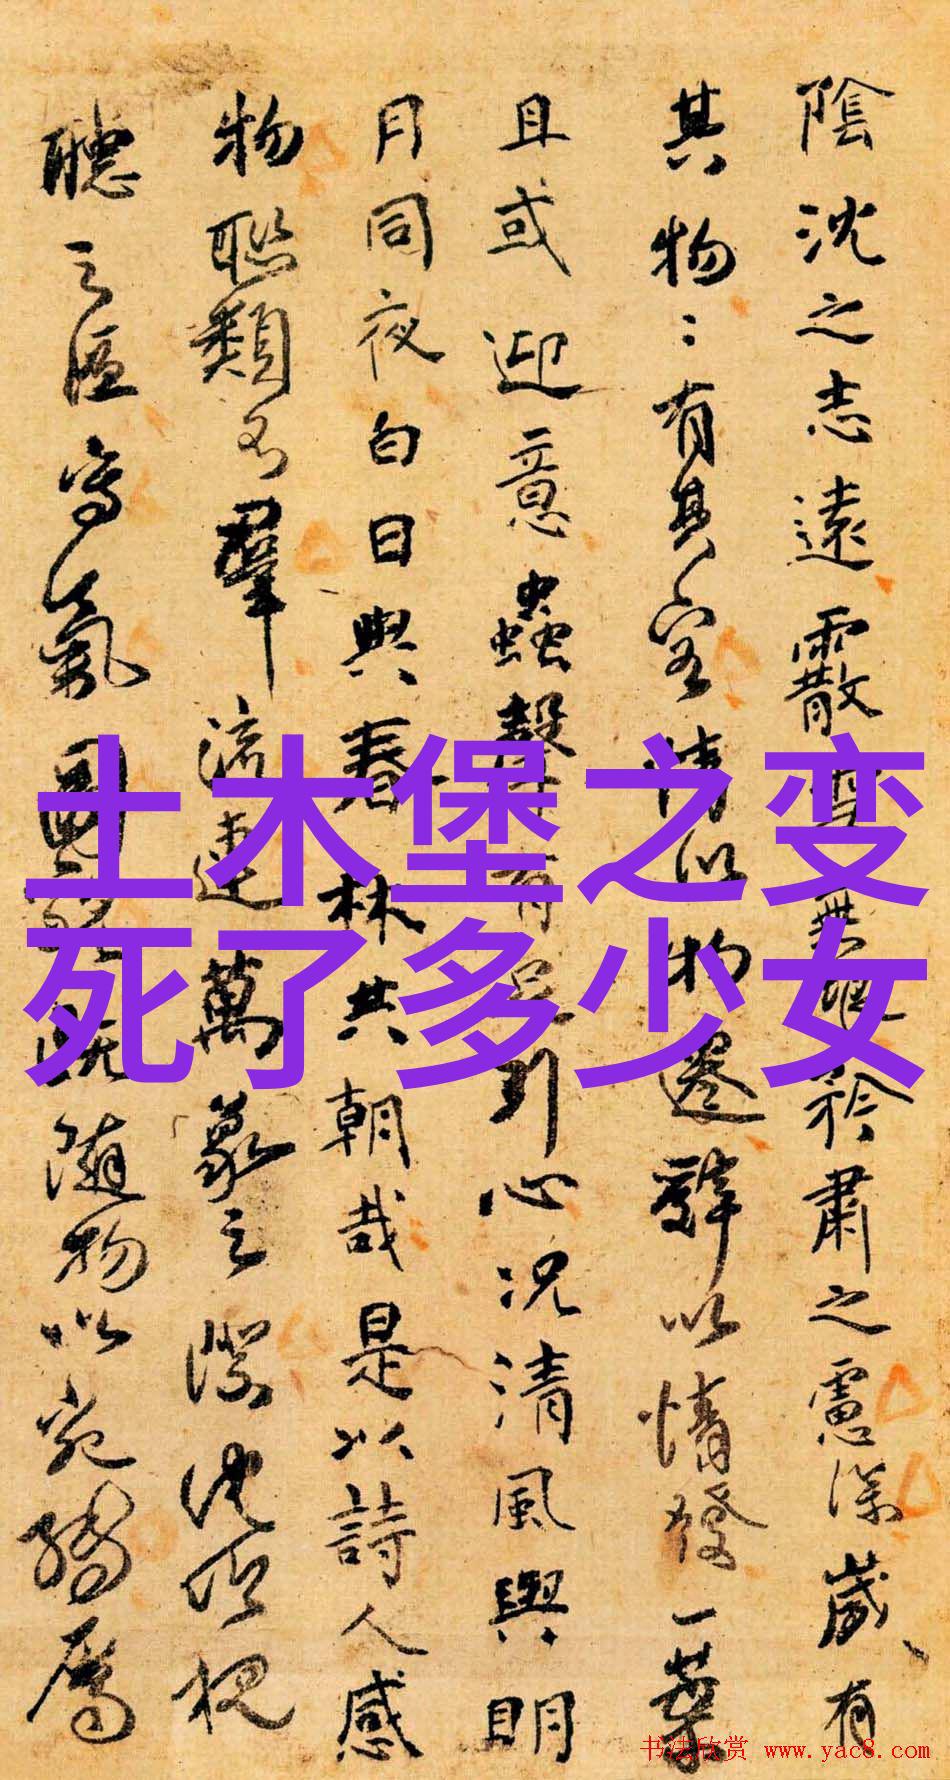 陰沈之志遠霰雪無垠矜肅之慮深歲有
其物二有其容情以物遷辭以情發一葉
且或迎意蟲聲有足引心況清風與明
月同夜白日與春林共朝哉是以詩人感
物聯類不窮流連萬象之際沈吟視
聽之區寫氣圖貌既隨物以宛轉屬
土木堡之变
死了多少女
书法欣赏 www.yac8.com